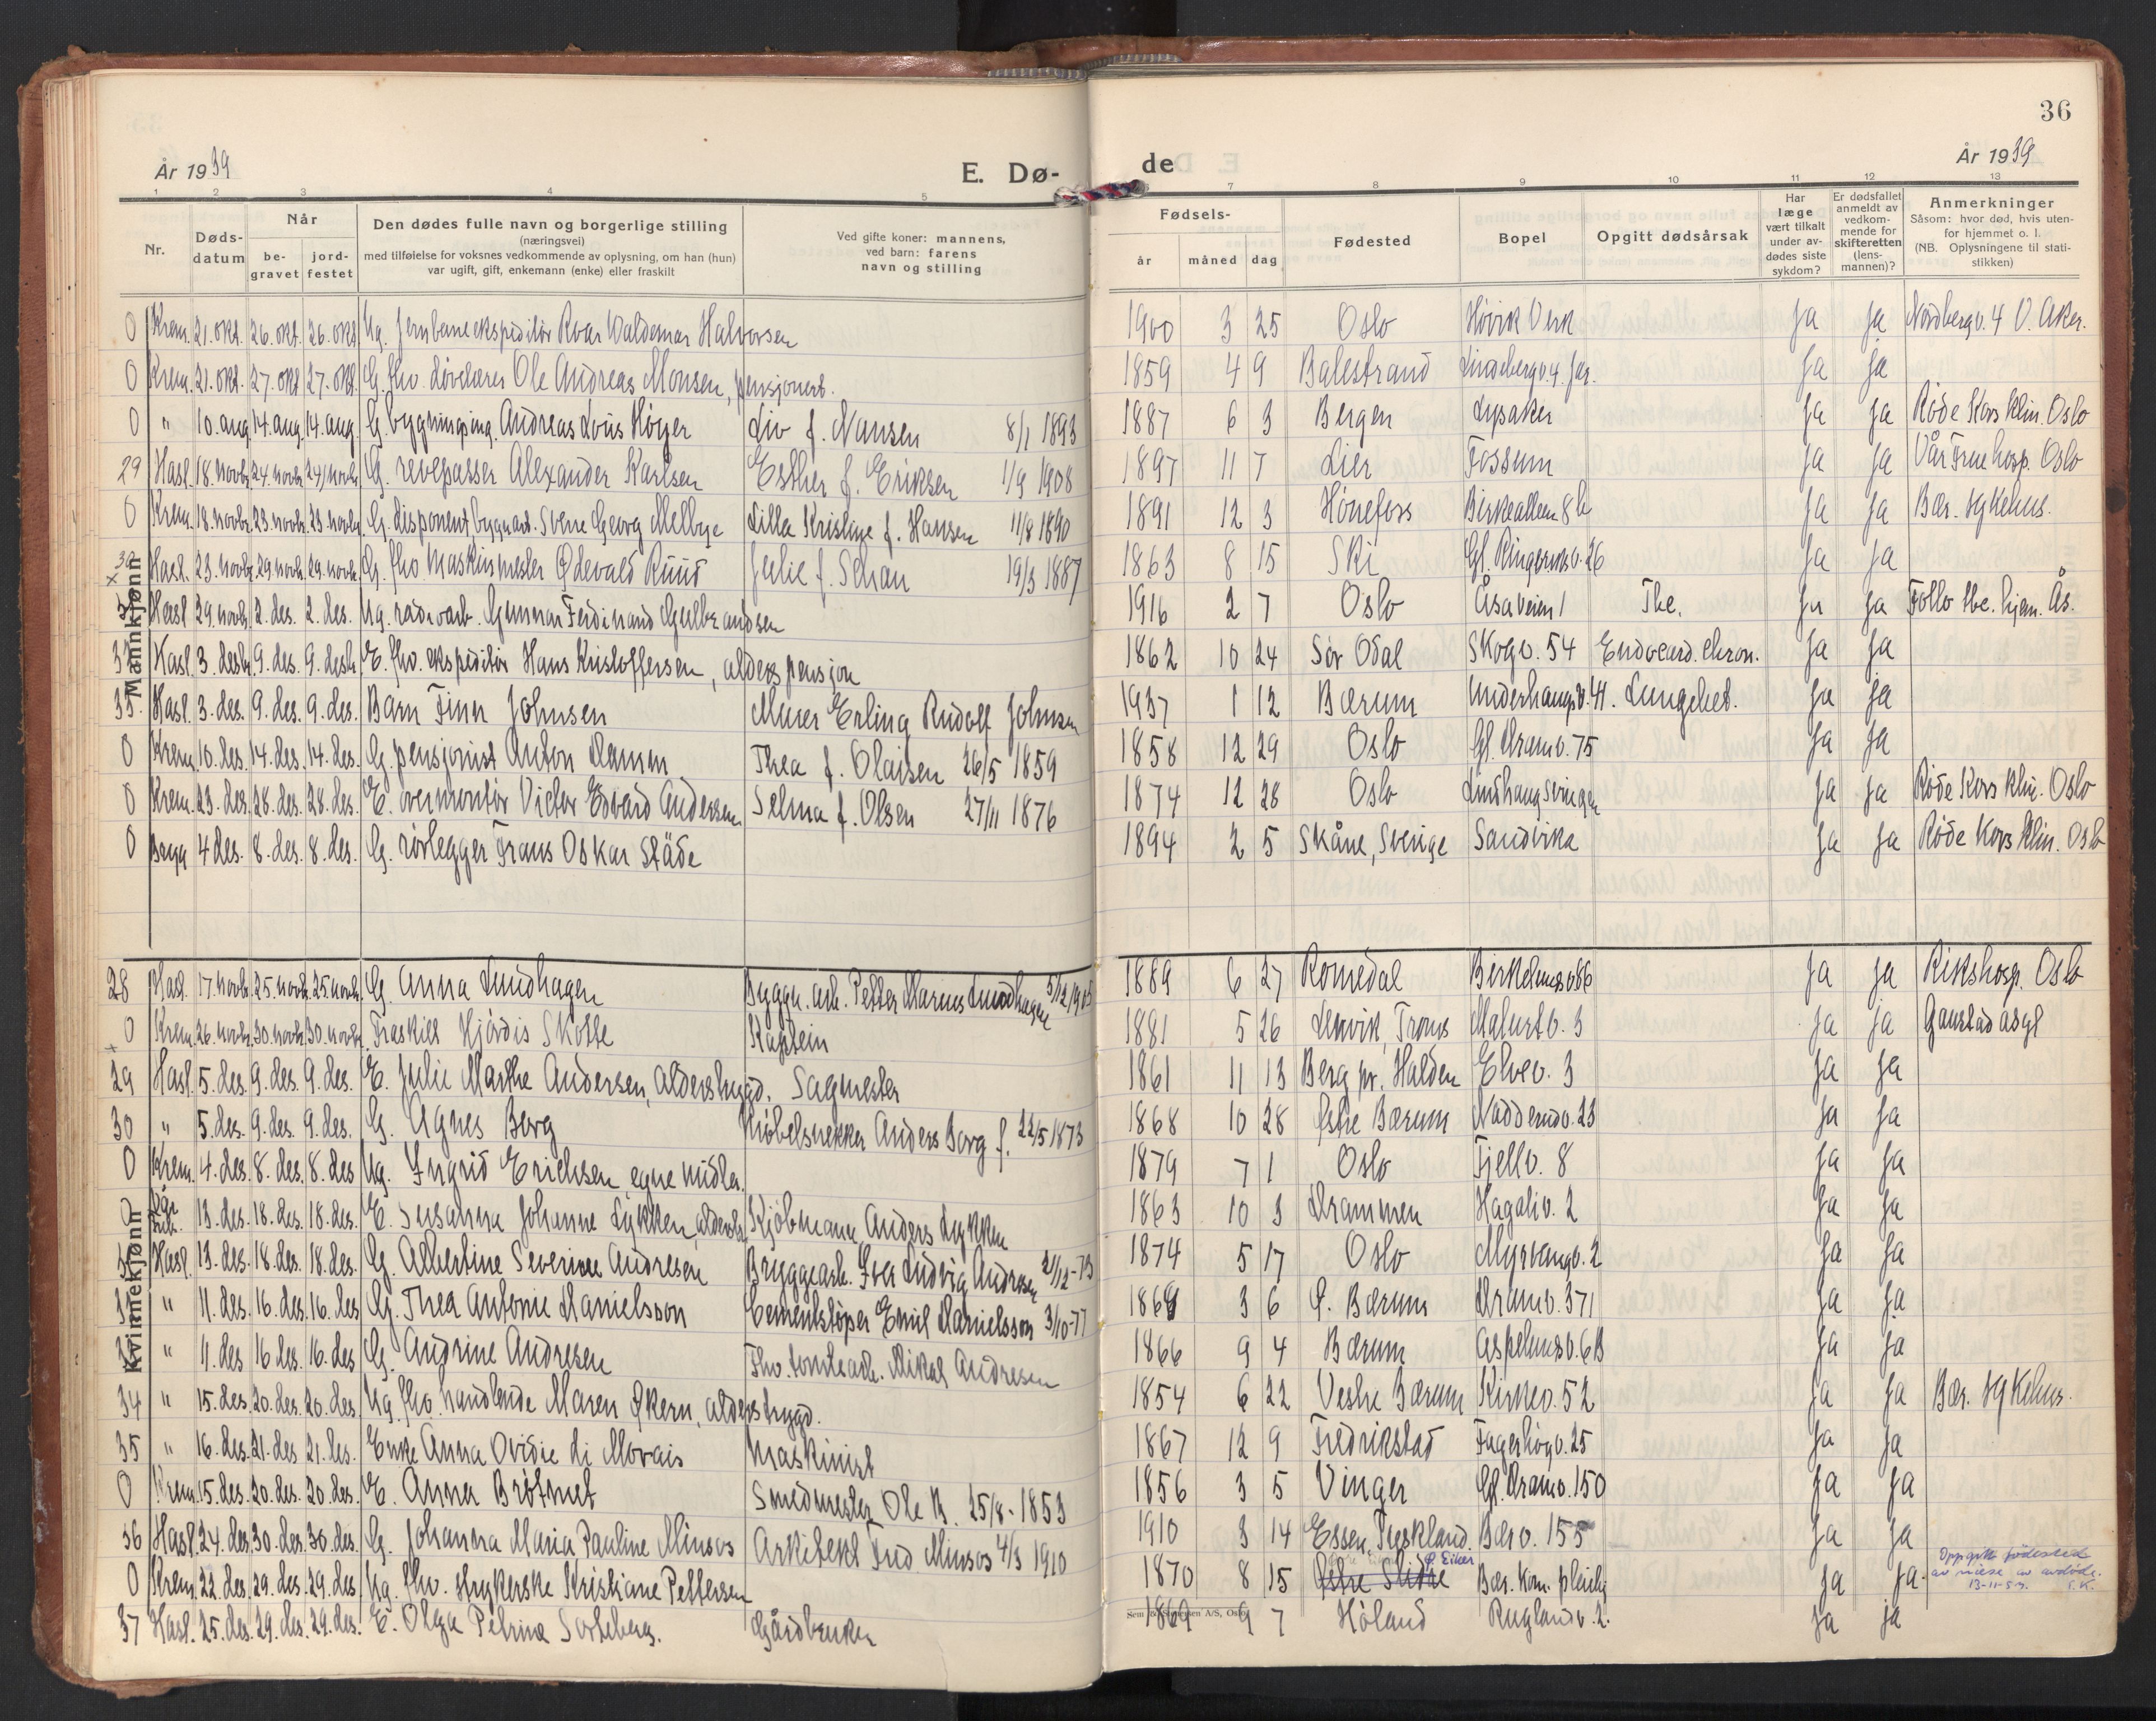 36
År 1939
E. Dø-
de
År 1939
1 2 3 4 5 6 7 8 9 10 11 12 13
Nr.
Døds-
datum
Når
be-
gravet
jord-
festet
Den dødes fulle navn og borgerlige stilling
(næringsvei)
med tilføielse for voksnes vedkommende av oplysning, om han (hun)
var ugift, gift, enkemann (enke) eller fraskilt
Ved gifte koner: mannens,
ved barn: farens
navn og stilling
Fødsels-
år måned dag
Fødested
Bopel
Opgitt dødsårsak
Har
læge
vært tilkalt
under av-
dødes siste
sykdom?
Er dødsfallet
anmeldt av
vedkom-
mende for
skifteretten
(lens-
mannen)?
Anmerkninger
Såsom: hvor død, hvis uten-
for hjemmet o. l.
(NB. Oplysningene til stati-
stikken)
Mannkjønn
0 Krem. 21. okt. 26. okt. 26. okt. Ug. jernbaneekspeditör Roar Valdemar Halvorsen 1900 3 25 Oslo Høvik Verk ja ja Nordbergv. 4 V. Aker.
0 Krem. 21. okt. 27. okt. 27. okt. G. fhv. døvelærer Ole Andreas Monsen, pensjonert. 1859 4 9 Balestrand Lindebergv. 4. ja ja
0 " 10. aug. 14. aug. 14. aug. G. bygningsing. Andreas Louis Høyer Liv f. Nansen 8/1 1893 1887 6 3 Bergen Lysaker ja ja Røde Kors klin. Oslo
29 Hasl. 18. novbr. 24. novbr. 24. novbr. G. revepasser Alexander Karlsen Esther f. Eriksen 1/9 1908 1897 11 7 Lier Fossum ja ja Vår Frue hosp. Oslo
0 Krem. 18. novbr. 23. novbr. 23. novbr. G. disponent, byggn.arb. Sverre Georg Melbye Lilla Kristine f. Hansen 11/8 1890 1891 12 3 Hønefoss Birkealleen 8 b ja ja Bær. sykehus.
Hasl. 23. novbr. 29. novbr. 29. novbr. G. fhv. maskinmester Odevald Ruud Julie f. Schau 19/3 1887 1863 8 15 Ski Gl. Ringeriksv. 26 ja ja
Hasl. 29. novbr. 2. des. 2. des. Ug. radioarb. Gunnar Ferdinand Gulbrandsen 1916 2 7 Oslo Åsaveien 1 Tbc. ja ja Follo tbc. hjem. Ås.
Hasl. 3. desbr. 9. des. 9. desbr. E. fhv. ekspeditör Hans Kristoffersen, alderspensjon 1862 10 24 Sør Odal Skogv. 54 Endocard. chron. ja ja
Hasl. 3. des. 9. des. 9. des. Barn Finn Johnsen Murer Erling Rudolf Johnsen 1937 1 12 Bærum Underhaugsv. 41. Lungebet. ja ja
0 Krem. 10. des. 14. des. 14. des. G. pensjonist Anton Damm Thea f. Olaisen 26/5 1859 1858 12 29 Oslo Gl. Dramv. 75 ja ja
0 Krem. 23. des. 28. des. 28. des. E. overmontör Victor Edvard Andersen Selma f. Olsen 27/11 1876 1874 12 28 Oslo Lindhaugsvingen ja ja Røde Kors klin. Oslo
0 Bryn 4 des. 8. des. 8. des. G. rörlegger Frans Oskar Ståde 1894 2 5 Skåne, Sverige Sandvika ja ja Røde Kors klin. Oslo
Kvinnekjønn
28 Hasl. 17. novbr. 25. novbr. 25. novbr. G. Anna Lundhagen Byggn. arb. Petter Marius Lundhagen 5/12 1905 1889 6 27 Romedal Birkelundsv. 66 ja ja Rikshosp. Oslo
0 Krem. 26. novbr. 30. novbr. 30. novbr. Fraskilt Hjördis Skotte Kaptein 1881 5 26 Lenvik, Troms Malurtv. 3 ja ja Gaustad asyl
29 Hasl. 5. des. 9. des. 9. des. E. Julie Marthe Andersen, alderstrygd. Sagmester 1861 11 13 Berg pr. Halden Elvev. 3 ja ja
30 " 5. des. 9. des. 9. des. G. Agnes Berg Møbelsnekker Anders Berg f. 22/5 1873 1868 10 28 Østre Bærum Nadderudv. 23 ja ja
0 Krem. 4. des. 8. des. 8. des Ug. Ingrid Erichsen egne midler. 1879 7 1 Oslo Fjellv. 8 ja ja
0 13. des. 18. des. 18. des. E. Susanna Johanne Lykken, alderstr. Kjöbmann Anders Lykken 1863 10 3 Drammen Hagaliv. 2 ja ja
Hasl. 13. des. 18. des. 18. des. G. Albertine Severine Andresen Bryggearb. Iver Ludvig Andresen 21/12-73 1874 5 17 Oslo Myrvangv. 2 ja ja
" 11. des. 16. des. 16. des G. Thea Antonie Danielsson Cementstøper Emil Danielsson 3/10-77 1868 3 6 Ø. Bærum Dramv. 371 ja ja
" 11. des 16 des. 16. des G. Andrine Andresen Fhv. tomtearb. Mikal Andresen 1866 9 4 Bærum Aspelundsv. 6 B ja ja
34 " 15. des. 20. des. 20. des. Ug. fhv. handlende Maren Økern, alderstrygd. 1854 6 22 Vestre Bærum Kirkev. 52 ja ja Bær. sykehus.
35 " 16. des. 21. des 21. des. Enke Anna Ovidie di Morais Maskinist 1867 12 9 Fredrikstad Fagerhögv. 25 ja ja
0 Krem. 15. des. 20. des. 20. des. E. Anna Bråtnet Smedmester Ole B. 25/8-1853 1856 3 5 Vinger Gl. Dramv. 150 ja ja
36 Hasl. 24. des. 30. des. 30. des. G. Johanna Maria Pauline Minsos Arkitekt Frid. Minsos 4/3 1910 1910 3 14 Essen, Tyskland. Bærv. 155 ja ja
0 Krem. 22. des. 29. des. 29. des. Ug. fhv. strykerske Kristiane Pettersen 1870 8 15 Ø. Eiker Bær. kom. pleiehj. ja ja. Oppgitt fødested av niese av avdøde. 13-11-53.
37 Hasl. 25. des. 29. des. 29. des. E. Olga Petrine Sorteberg. Gårdbruker 1869 9 7 Høland Ruglandv. 2 ja ja
Sem & Stenersen A/S, Oslo